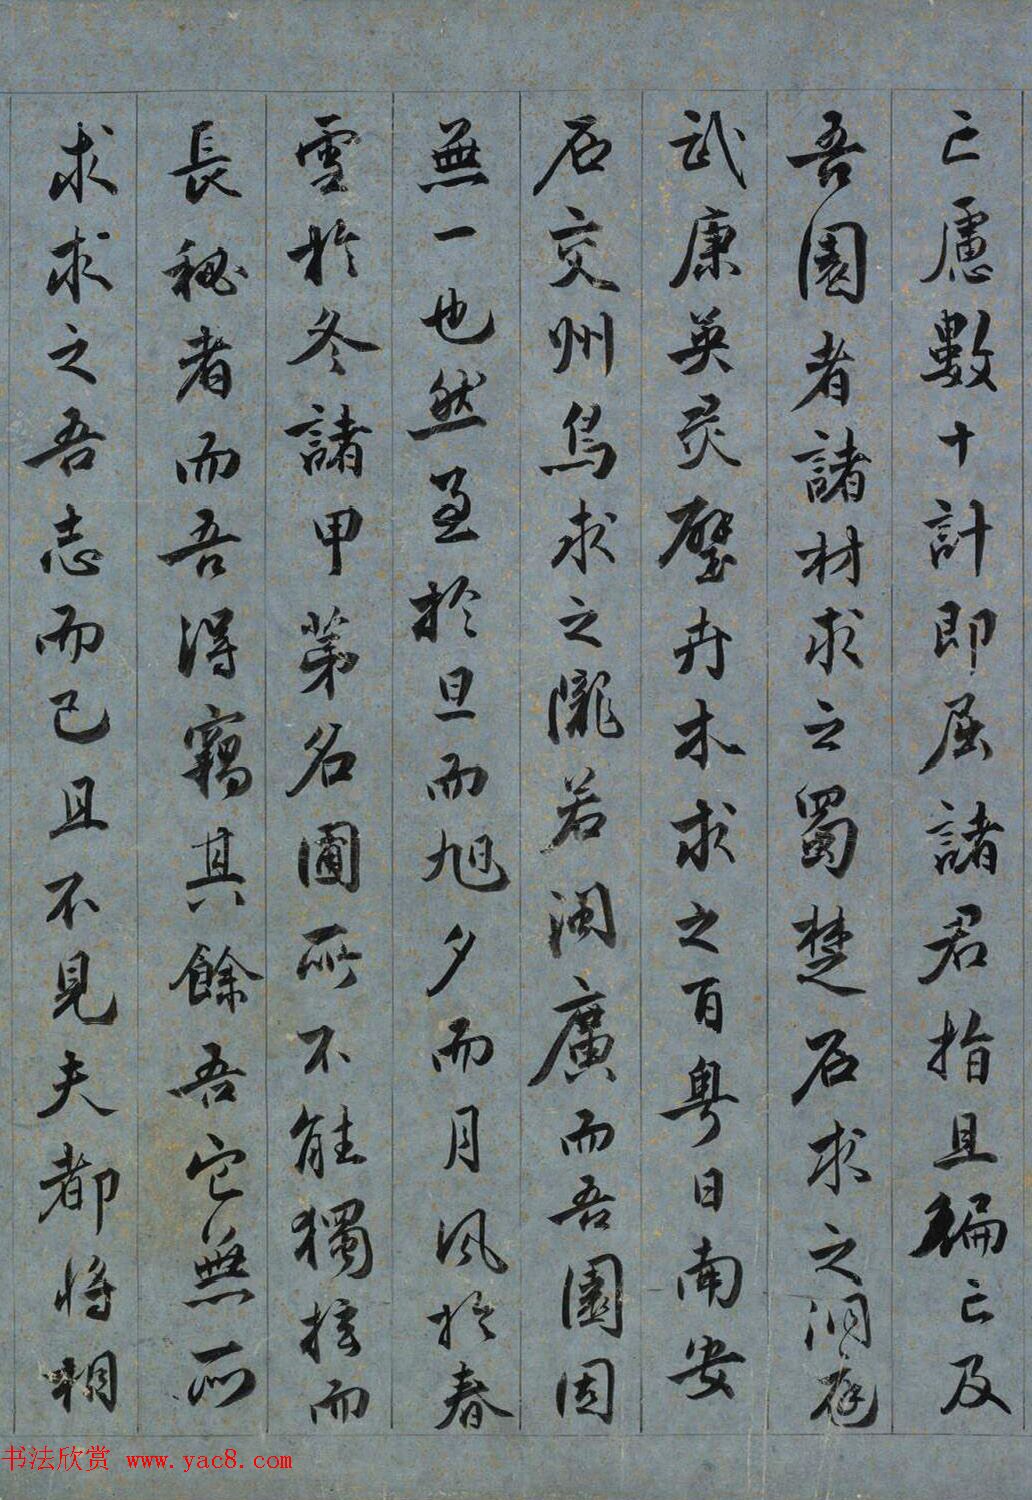 亡慮數十計即屈諸君指且徧亡及
吾園者諸材求之蜀楚石求之洞庭
武康英靈璧卉木求之百粵日南安
石交州鳥求之隴若閩廣而吾園固
無一也然至於旦而旭夕而月風於春
雪於冬諸甲第名圃所不能獨擅而
長秘者而吾得竊其餘吾它無所
求求之吾志而已且不見夫都將相
书法欣赏 www.yac8.com